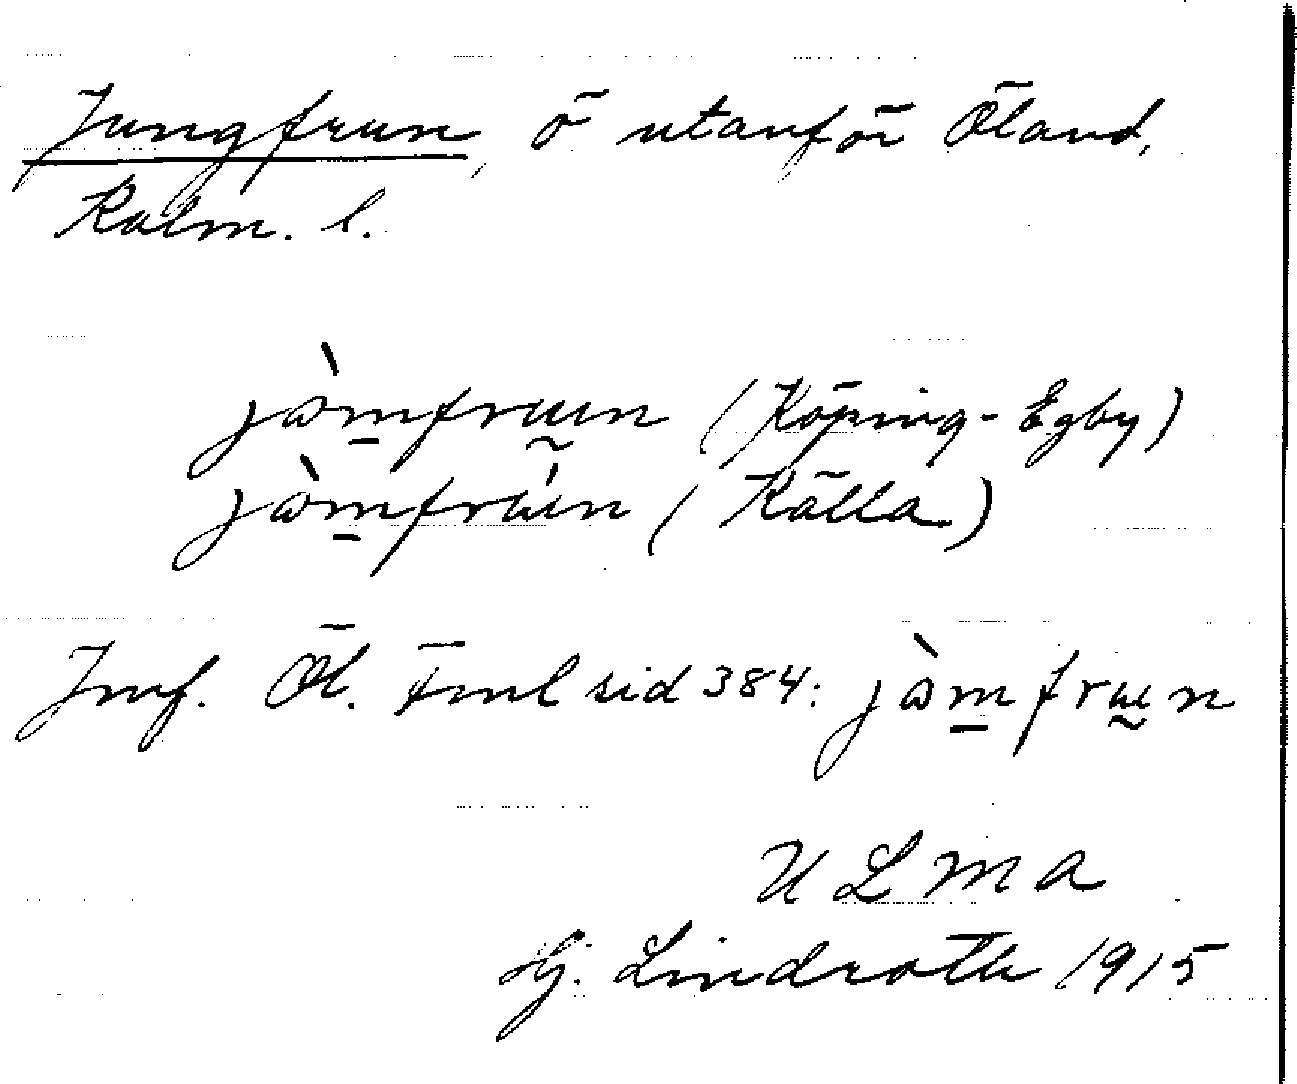 Jungfrun, ö utanför Öland,
Kalm. l.
jɷ̀m̠frɯ̰n (Köping-Egby)
jɷ̀m̠frɯ́n (Källa)
Jmf. Öl. Fml sid 384: jɷ̀m̠frɯ̰n
ULMA
Hj. Lindroth 1915